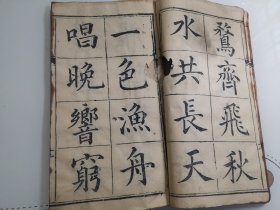 鶩齊飛秋
水共長天
一色漁舟
唱晚響窮